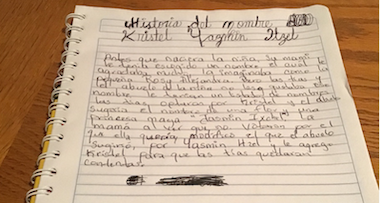 Historia del nombre
Kristel Yazmin Itzel
Antes que naciera la niña, su mami
le tenía escogido un nombre el cual le
agradaba mucho la imaginaba como la
pequeña Rosa Alejandra pero las tías y
el abuelo de la niña no les gustaba ese
nombre
las tías optaron por Kristel y el abuelo
sugería el nombre de una
princesa maya "Jasmin Ixchel" la
mamá al ver que no votaron por el
que ella quería, modificó el que el abuelo
sugirió, por Yasmin Itzel y le agregó
Kristel para que las tías quedaran
contentas.